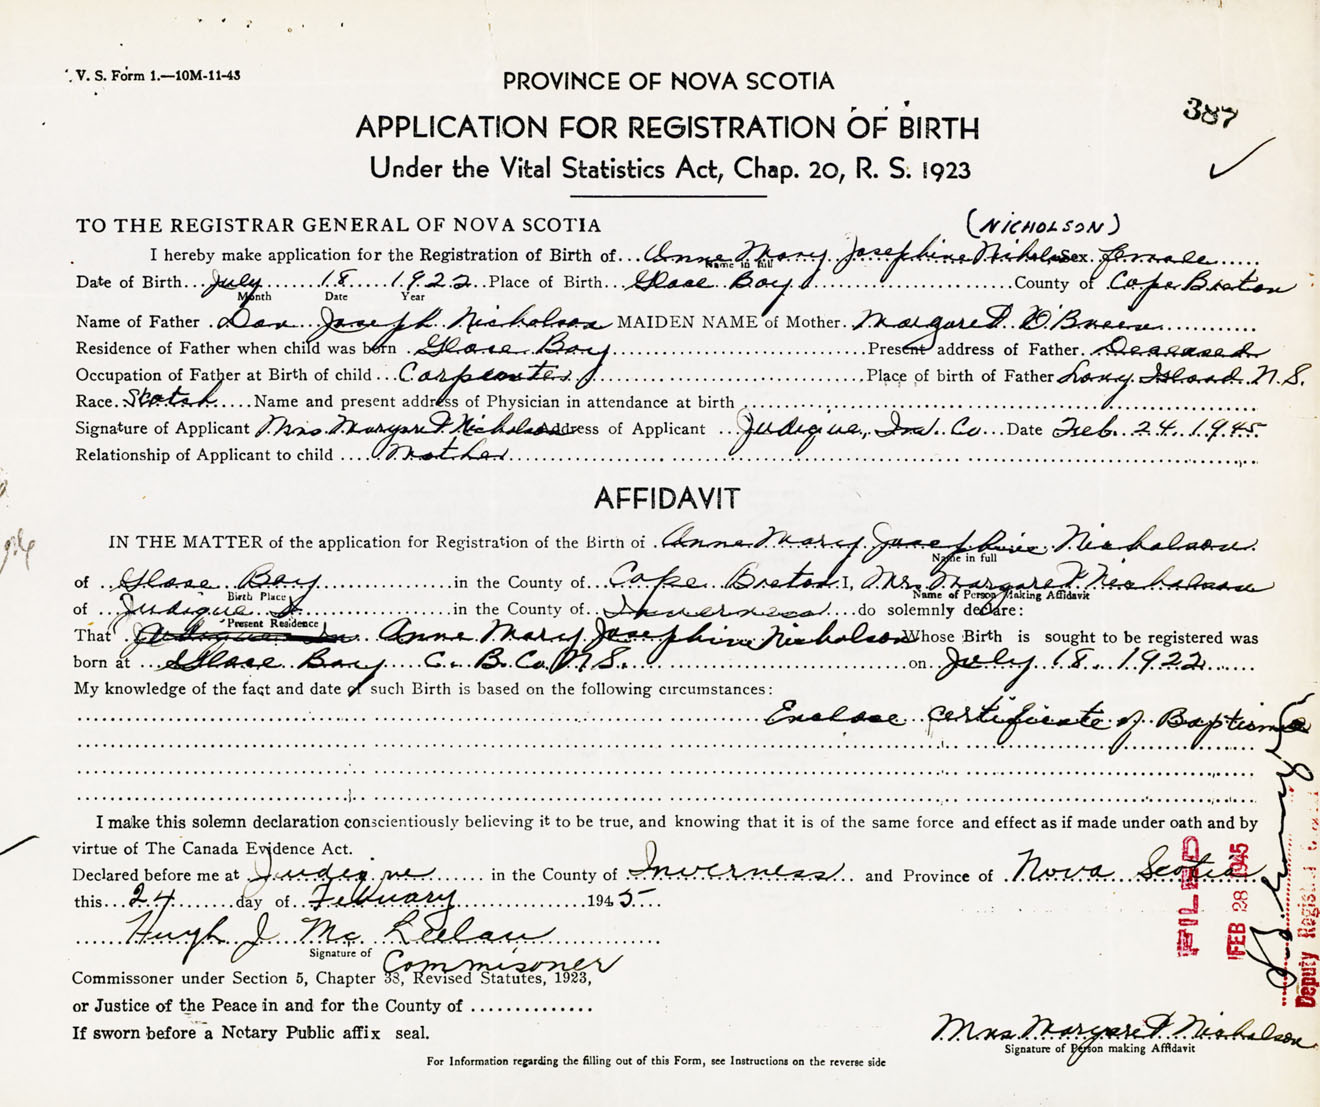 V. S. Form 1.—10M-11-43
PROVINCE OF NOVA SCOTIA
387
APPLICATION FOR REGISTRATION OF BIRTH
Under the Vital Statistics Act, Chap. 20, R. S. 1923
TO THE REGISTRAR GENERAL OF NOVA SCOTIA (NICHOLSON)
I hereby make application for the Registration of Birth of Anne Mary Josephine Nicholson Sex female
Name in full
Date of Birth July 18 1922 Place of Birth Glace Bay County of Cape Breton
Month Date Year
Name of Father Dan Joseph Nicholson MAIDEN NAME of Mother Margaret O'Brien
Residence of Father when child was born Glace Bay Present address of Father Deceased
Occupation of Father at Birth of child Carpenter Place of birth of Father Long Island N.S.
Race Scotch Name and present address of Physician in attendance at birth
Signature of Applicant Mrs. Margaret Nicholson Address of Applicant Judique, Inv. Co. Date Feb. 24 1945
Relationship of Applicant to child Mother
AFFIDAVIT
IN THE MATTER of the application for Registration of the Birth of Anne Mary Josephine Nicholson
Name in full
of Glace Bay in the County of Cape Breton I, Mrs Margaret Nicholson
Birth Place Name of Person Making Affidavit
of Judique in the County of Inverness do solemnly declare:
Present Residence
That Anne Mary Josephine Nicholson Whose Birth is sought to be registered was
born at Glace Bay C. B. Co. N.S. on July 18 1922
My knowledge of the fact and date of such Birth is based on the following circumstances:
Enclose certificate of Baptism
I make this solemn declaration conscientiously believing it to be true, and knowing that it is of the same force and effect as if made under oath and by
virtue of The Canada Evidence Act.
Declared before me at Judique in the County of Inverness and Province of Nova Scotia
this 24 day of February 1945
Hugh J. Mc Lellan
Signature of Commisoner
Commissoner under Section 5, Chapter 38, Revised Statutes, 1923,
or Justice of the Peace in and for the County of
If sworn before a Notary Public affix seal.
Mrs Margaret Nicholson
Signature of Person making Affidavit
For Information regarding the filling out of this Form, see Instructions on the reverse side
FILED
FEB 28 1945
Deputy Registrar